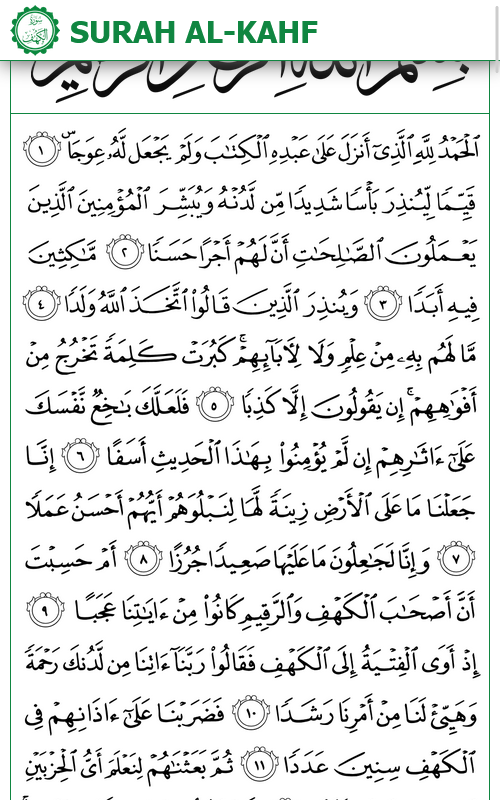 SURAH AL-KAHF
ٱلْحَمْدُ لِلَّهِ ٱلَّذِىٓ أَنزَلَ عَلَىٰ عَبْدِهِ ٱلْكِتَـٰبَ وَلَمْ يَجْعَل لَّهُۥ عِوَجَاۜ ١
قَيِّمًا لِّيُنذِرَ بَأْسًا شَدِيدًا مِّن لَّدُنْهُ وَيُبَشِّرَ ٱلْمُؤْمِنِينَ ٱلَّذِينَ
يَعْمَلُونَ ٱلصَّـٰلِحَـٰتِ أَنَّ لَهُمْ أَجْرًا حَسَنًا ٢ مَّـٰكِثِينَ
فِيهِ أَبَدًا ٣ وَيُنذِرَ ٱلَّذِينَ قَالُوا۟ ٱتَّخَذَ ٱللَّهُ وَلَدًا ٤
مَّا لَهُم بِهِۦ مِنْ عِلْمٍ وَلَا لِـَٔابَآئِهِمْ ۚ كَبُرَتْ كَلِمَةً تَخْرُجُ مِنْ
أَفْوَٰهِهِمْ ۚ إِن يَقُولُونَ إِلَّا كَذِبًا ٥ فَلَعَلَّكَ بَـٰخِعٌ نَّفْسَكَ
عَلَىٰٓ ءَاثَـٰرِهِمْ إِن لَّمْ يُؤْمِنُوا۟ بِهَـٰذَا ٱلْحَدِيثِ أَسَفًا ٦ إِنَّا
جَعَلْنَا مَا عَلَى ٱلْأَرْضِ زِينَةً لَّهَا لِنَبْلُوَهُمْ أَيُّهُمْ أَحْسَنُ عَمَلًا
٧ وَإِنَّا لَجَـٰعِلُونَ مَا عَلَيْهَا صَعِيدًا جُرُزًا ٨ أَمْ حَسِبْتَ
أَنَّ أَصْحَـٰبَ ٱلْكَهْفِ وَٱلرَّقِيمِ كَانُوا۟ مِنْ ءَايَـٰتِنَا عَجَبًا ٩
إِذْ أَوَى ٱلْفِتْيَةُ إِلَى ٱلْكَهْفِ فَقَالُوا۟ رَبَّنَآ ءَاتِنَا مِن لَّدُنكَ رَحْمَةً
وَهَيِّئْ لَنَا مِنْ أَمْرِنَا رَشَدًا ١٠ فَضَرَبْنَا عَلَىٰٓ ءَاذَانِهِمْ فِى
ٱلْكَهْفِ سِنِينَ عَدَدًا ١١ ثُمَّ بَعَثْنَـٰهُمْ لِنَعْلَمَ أَىُّ ٱلْحِزْبَيْنِ